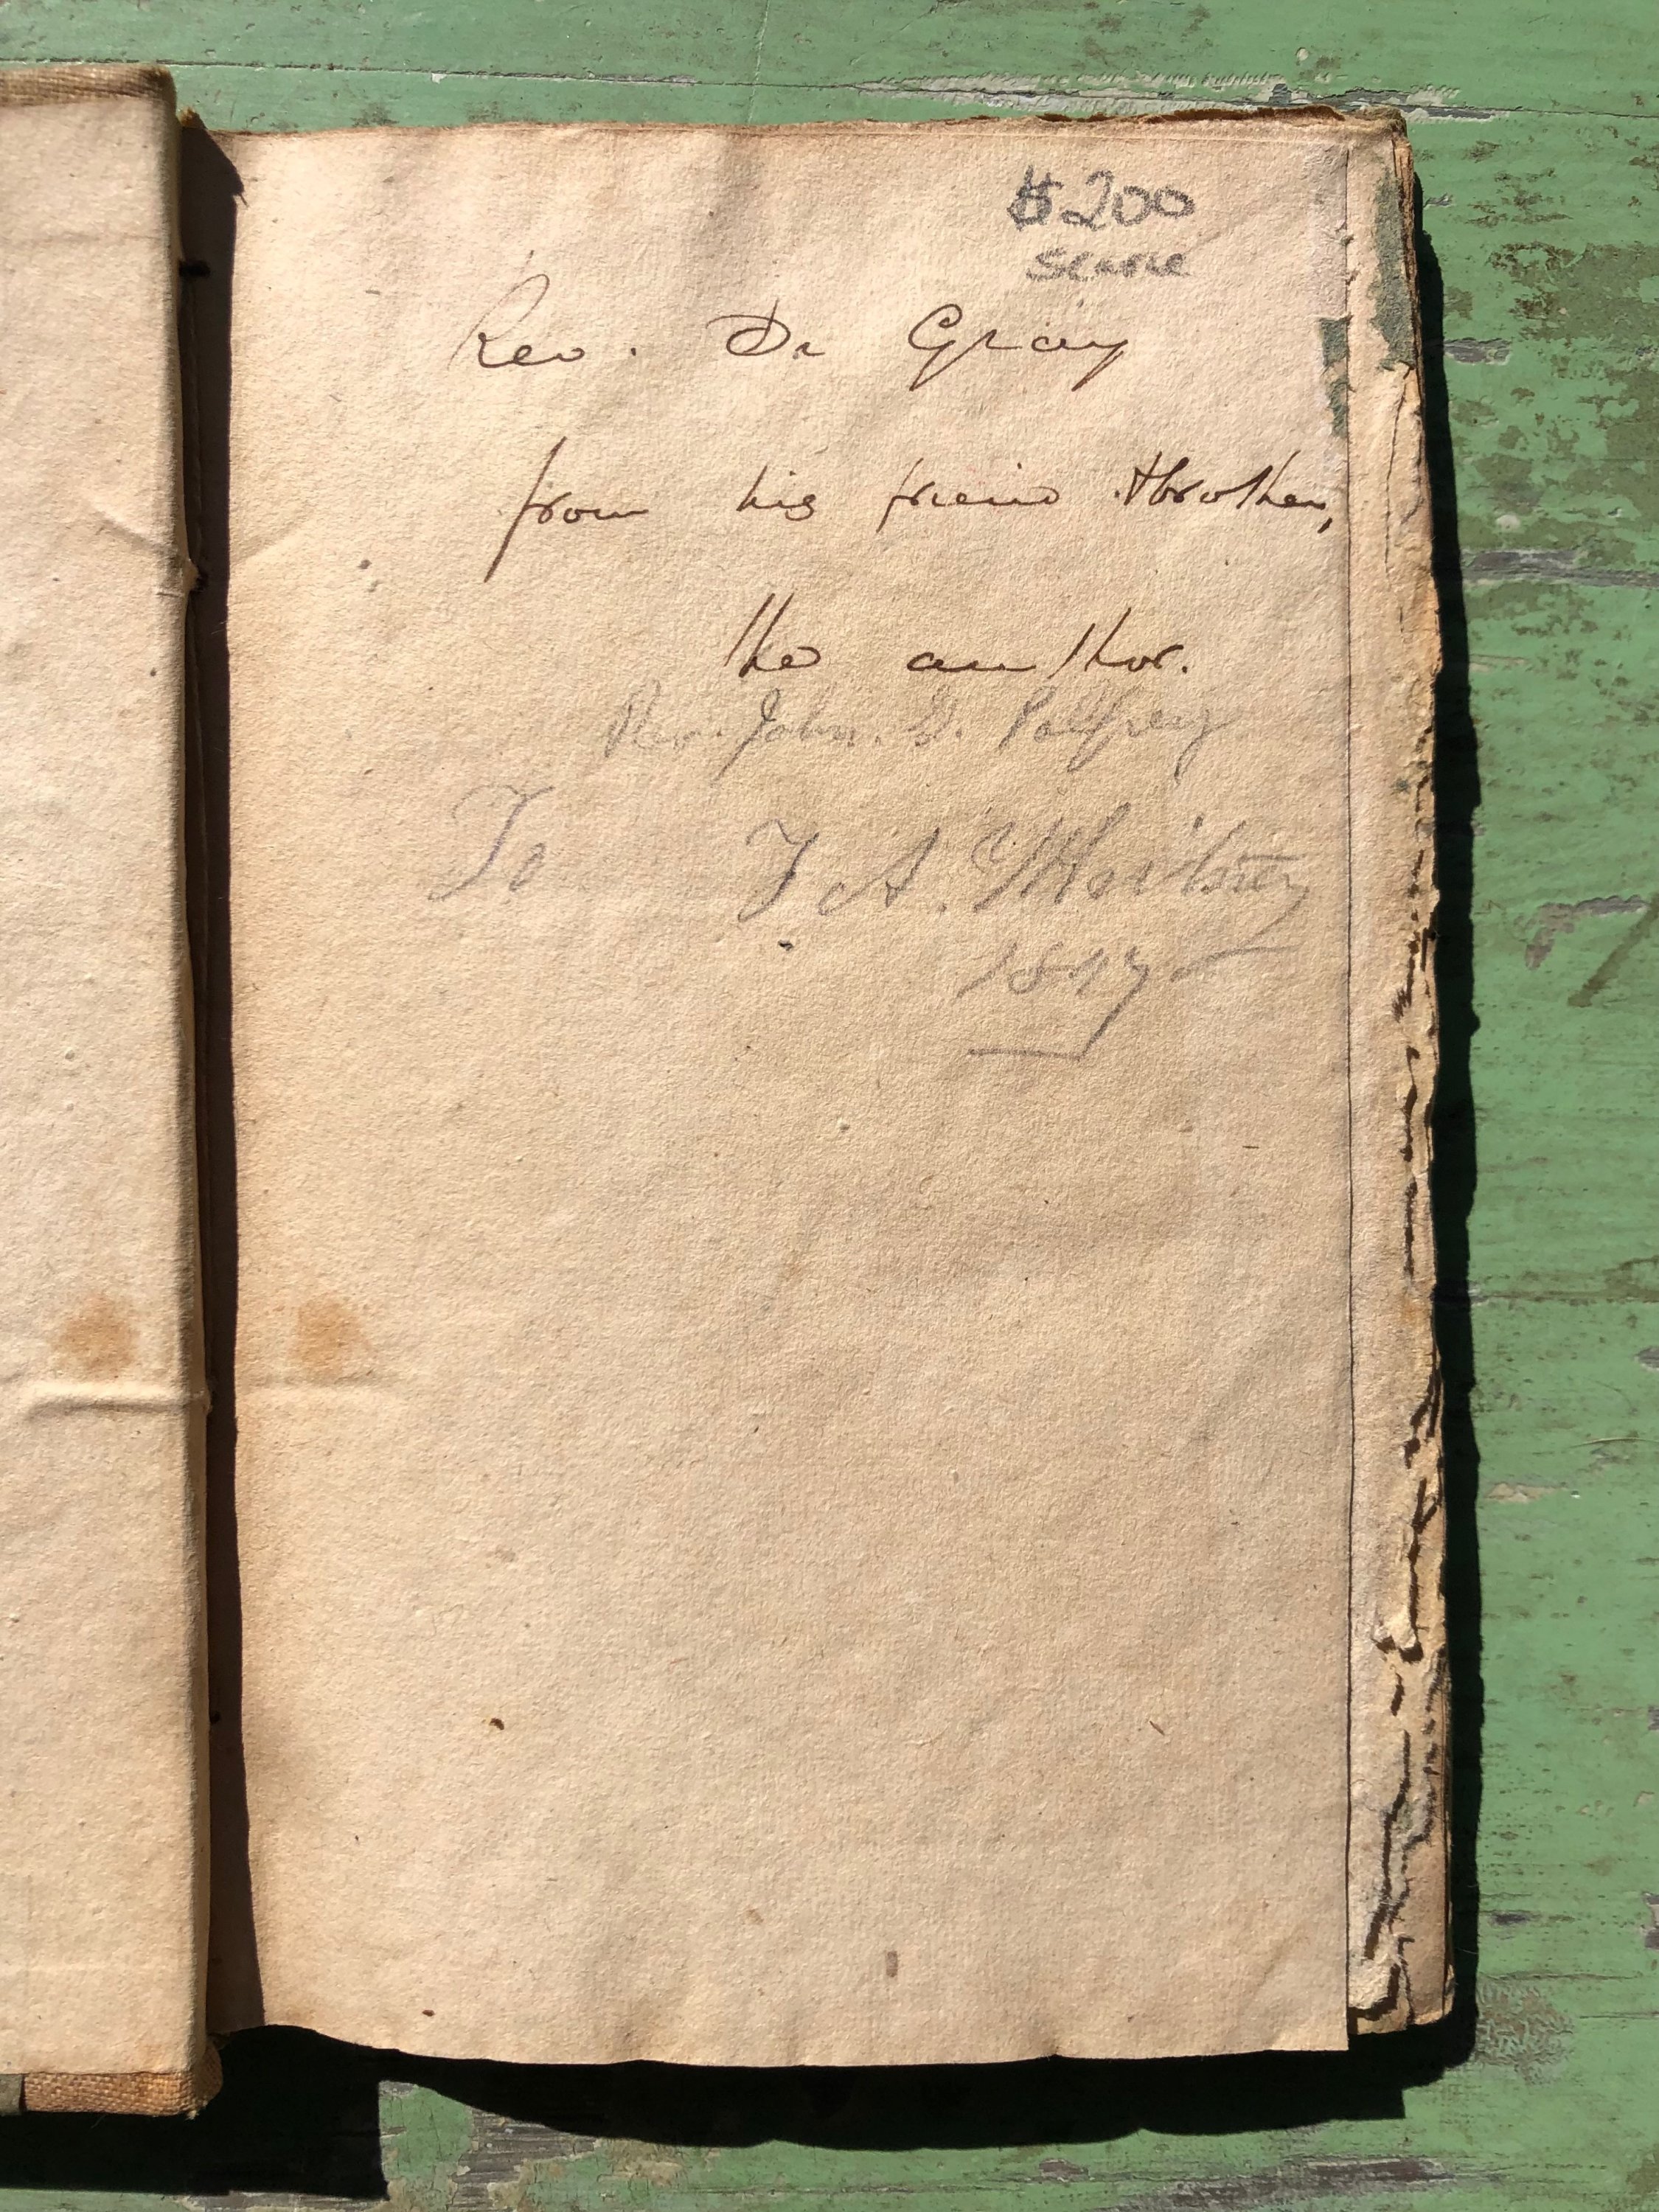 $200
scarce
Rev. Dr Gray
from his friend & brother,
the author.
Rev. John. G. Palfrey
To F. A. Whitney
1847